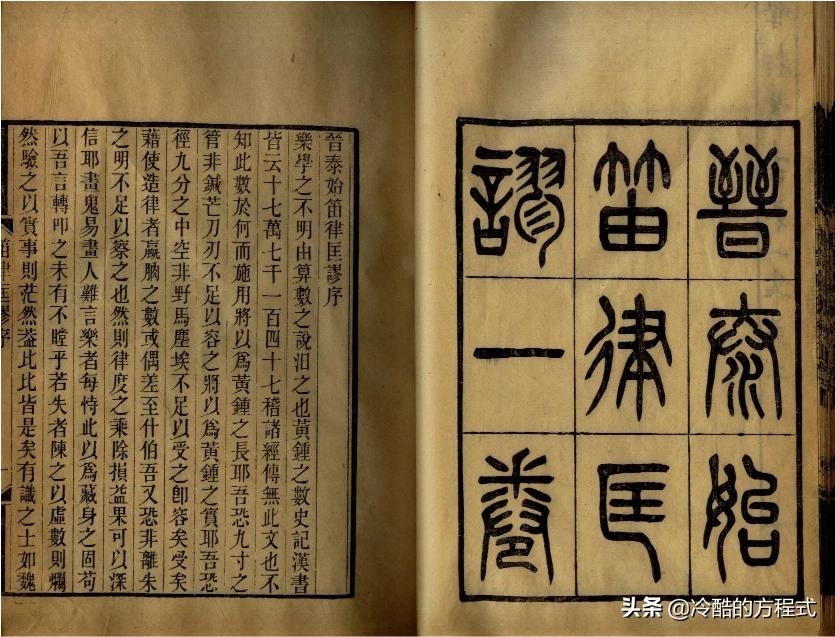 晉泰始
笛律匡
謬一卷
晉泰始笛律匡謬序
樂學之不明由算數之說汨之也黃鍾之數史記漢書
皆云十七萬七千一百四十七稽諸經傳無此文也不
知此數於何而施用將以爲黃鍾之長耶吾恐九寸之
管非鍼芒刀刃不足以容之將以爲黃鍾之實耶吾恐
徑九分之中空非野馬塵埃不足以受之卽容矣受矣
藉使造律者嬴朒之數或偶差至什伯吾又恐非離朱
之明不足以察之也然則律度之乘除損益果可以深
信耶畫鬼易畫人難言樂者每恃此以爲藏身之固苟
以吾言轉叩之未有不瞠乎若失者陳之以虛數則爛
然驗之以實事則茫然蓋比比皆是矣有識之士如魏
笛律匡謬序
一
头条 @冷酷的方程式